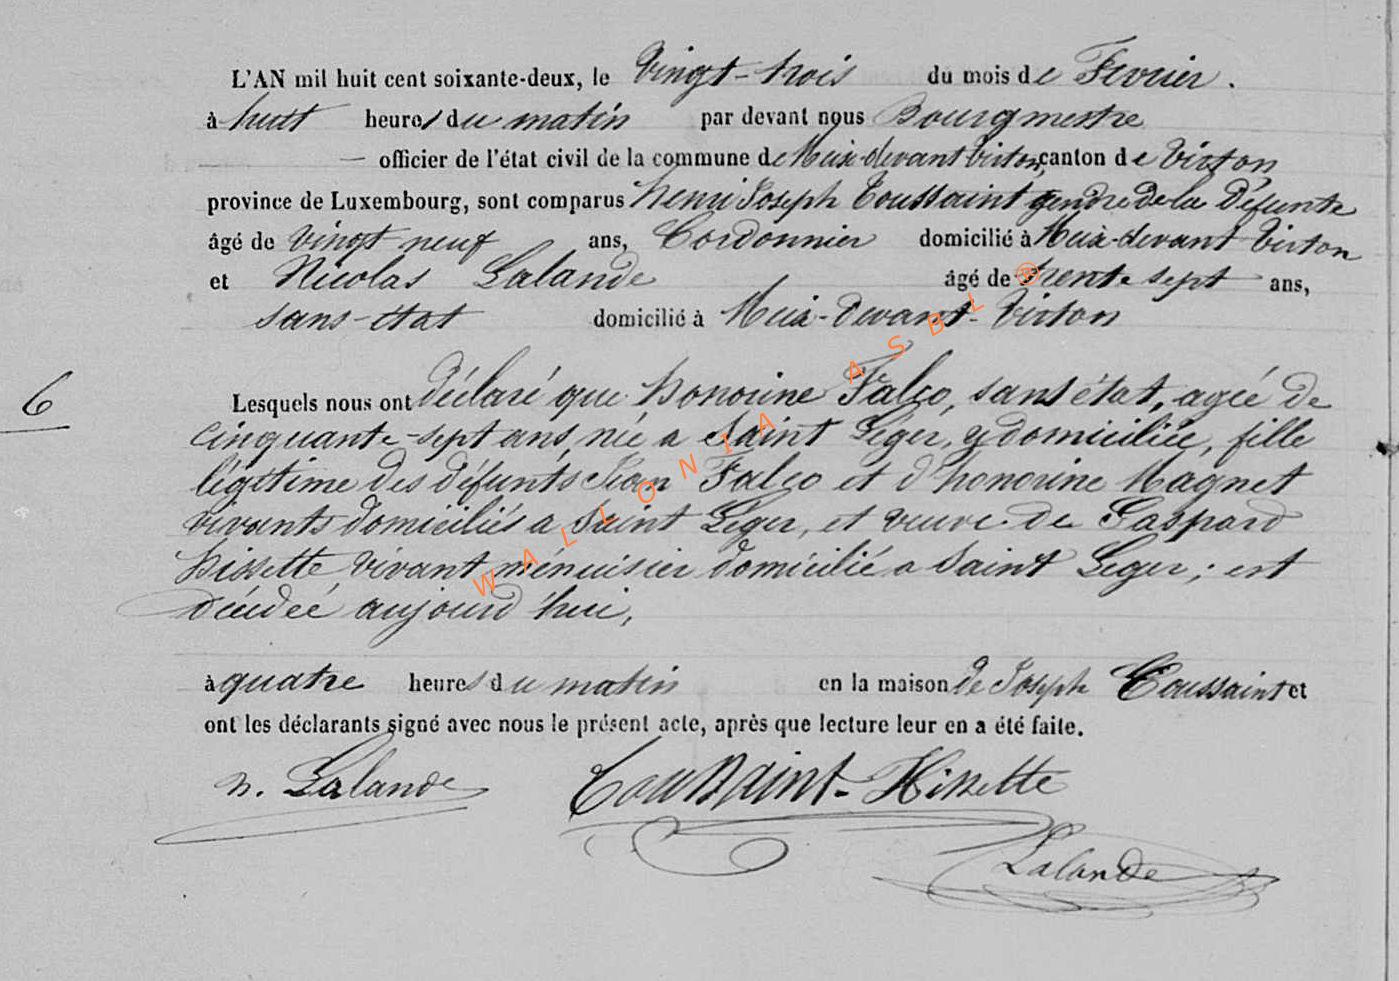 L'AN mil huit cent soixante-deux, le Vingt-trois du mois de Fevrier.
à huit heures du matin par devant nous Bourgmestre
officier de l'état civil de la commune de Meix-devant Virton, canton de Virton,
province de Luxembourg, sont comparus henri Joseph Toussaint gendre de la Défunte
âgé de vingt neuf ans, Cordonnier domicilié à Meix-devant Virton
et Nicolas Lalande âgé de trente sept ans,
sans-état domicilié à Meix-devant-Virton
6
Lesquels nous ont déclaré que honorine Falco, sans état, agée de
cinquante-sept ans, née a Saint Leger, y domiciliée, fille
légitime des défunts Jean Falco et d'honorine Magnet
vivants domiciliés a Saint Leger, et veuve de Gaspard
hissette, vivant ménuisier domicilié a Saint Leger; est
décédée aujourd'hui,
à quatre heures du matin en la maison de Joseph Toussaint et
ont les déclarants signé avec nous le présent acte, après que lecture leur en a été faite.
n. Lalande Toussaint-Hissette
Lalande
WALLONIA ASBL ®